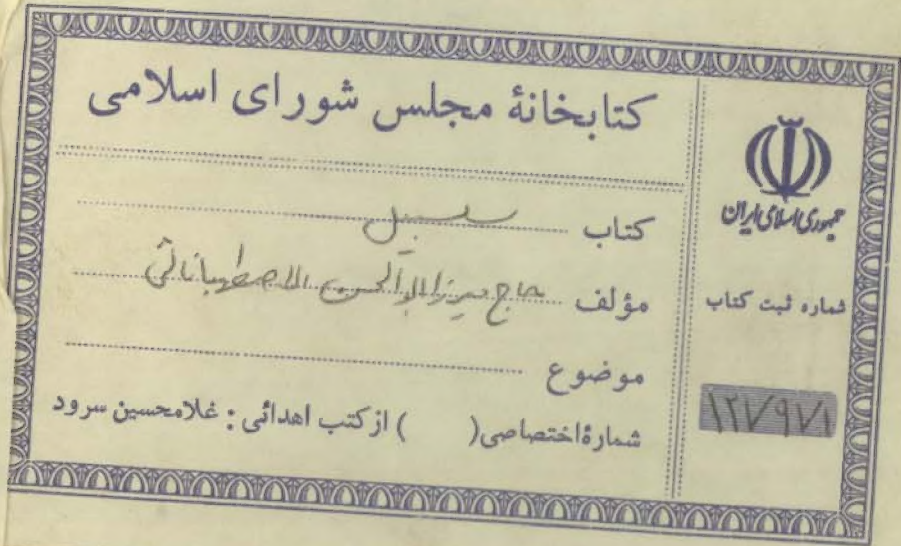 کتابخانهٔ مجلس شورای اسلامی
کتاب سلسبیل
مؤلف حاج میرزا ابوالحسن الاصطهباناتی
موضوع
شمارهٔ اختصاصی( ) از کتب اهدائی : غلامحسین سرود
جمهوری اسلامی ایران
شماره ثبت کتاب
۱۲۷۹۷۱